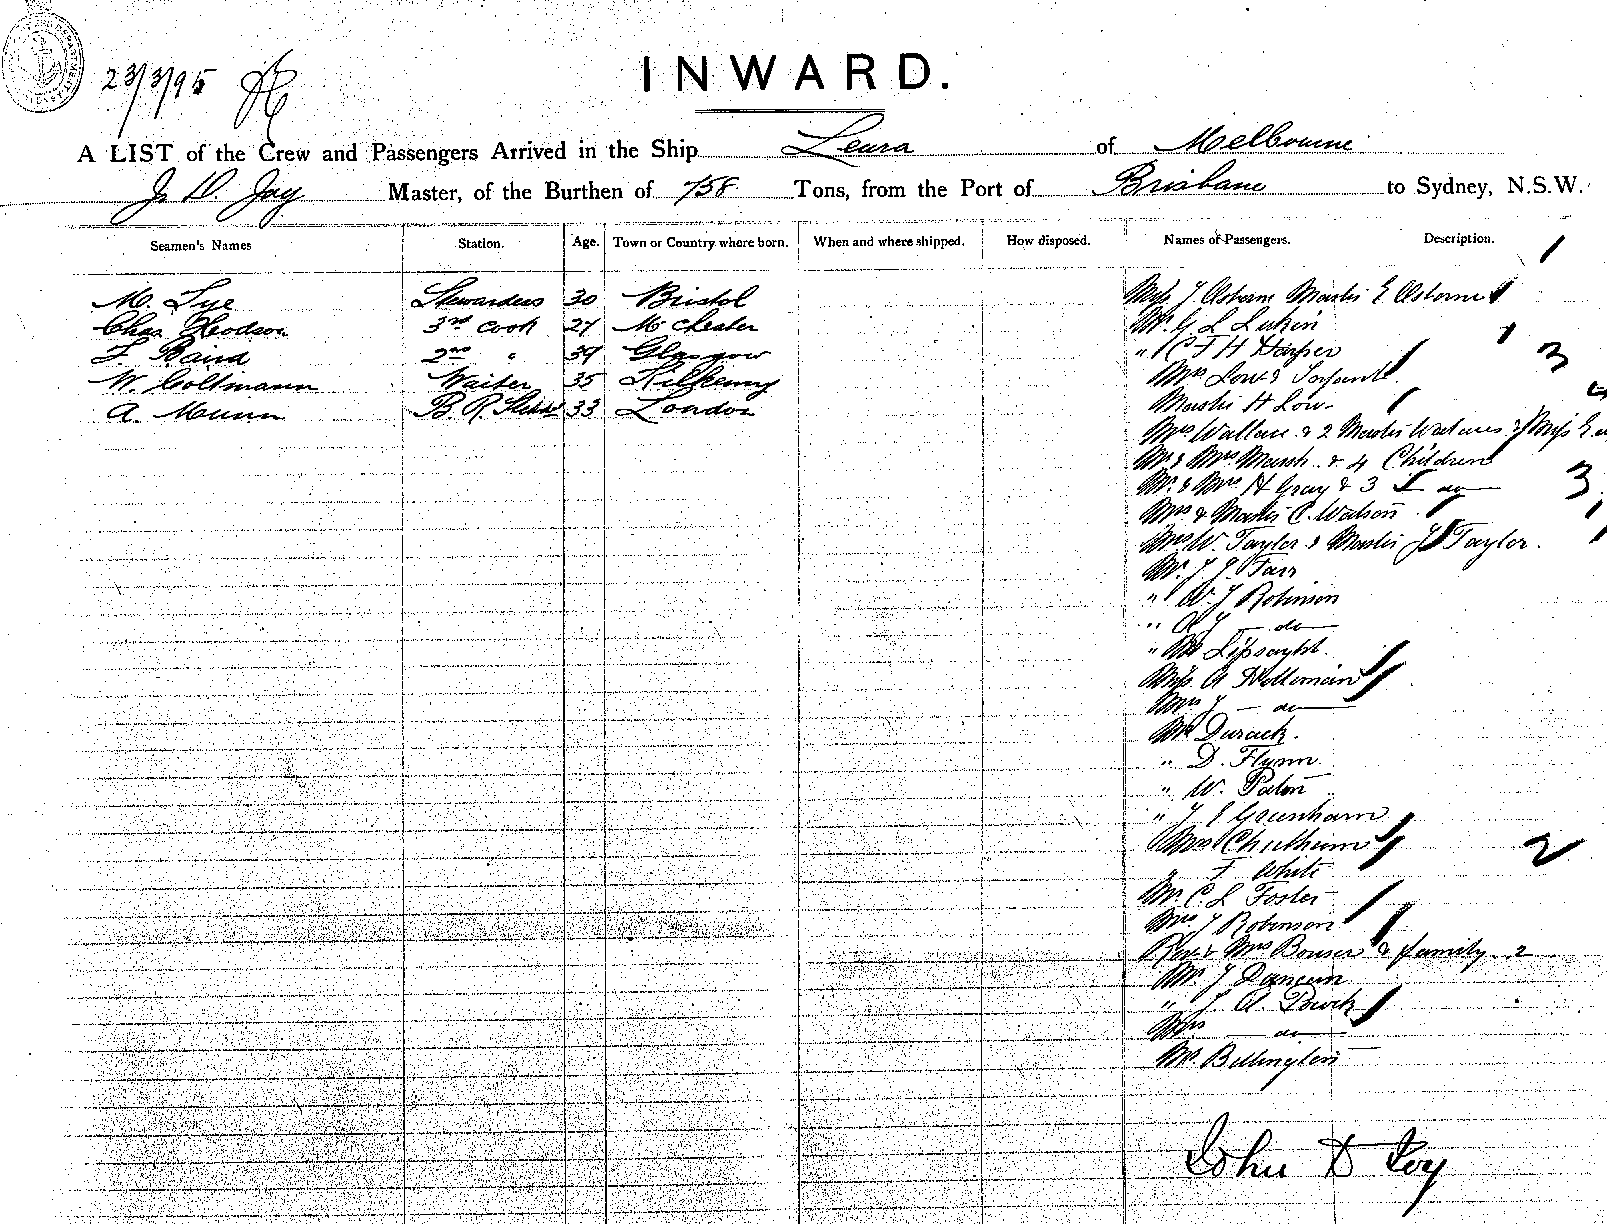 23/3/95
INWARD.
A LIST of the Crew and Passengers Arrived in the Ship Leura of Melbourne
J. D. Joy Master, of the Burthen of 758 Tons, from the Port of Brisbane to Sydney, N.S.W.
Seamen's Names Station. Age. Town or Country where born. When and where shipped. How disposed. Names of Passengers. Description.
M. Lye Stewardess 30 Bristol
Chas. Hodson 3rd Cook 27 McChester
F. Baird 2nd " 39 Glasgow
W. Coltmann Waiter 35 Kilkenny
A. Munn B. R. 33 London
Miss J Osborne Master E Osborne
Mr. G L Lukin
" C F H Harper
Mrs Low & Infant
Master H Low
Mrs Wallace & 2 Masters Wallace & Miss
Mr & Mrs Marsh & 4 Children
Mr. & Mrs H Gray & 3 do
Mrs & Master C. Watson
Mrs W. Taylor & Master J Taylor.
Mr. J J. Farr
" W. J Robinson
" A J do
" Lipsaght
Miss A Welleman
Mrs J do
Mr Durack.
" D. Flynn
" W. Paton
" J Greenham
Mrs
" F White
Mr. C. L Foster
Mrs J Robinson
Rev & Mrs & family 2
Mr. J
" J. A.
Mrs do
Mr. Billington
1
3
3
2
John D Joy